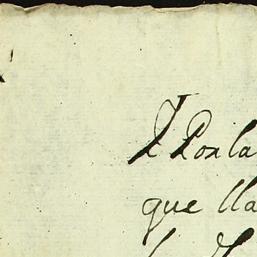 Y Por la
que lla